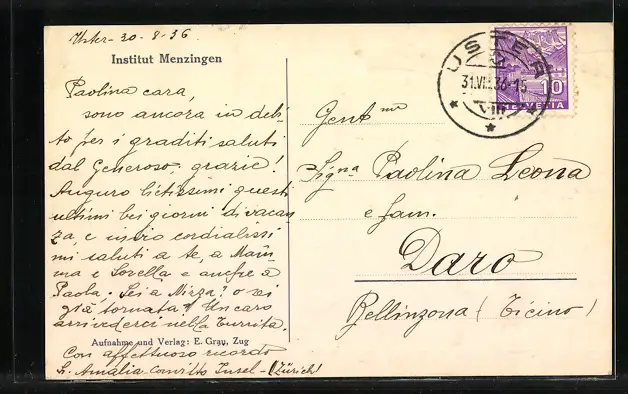 Uster - 30 - 8 - 36
Institut Menzingen
Paolina cara,
sono ancora in debi-
to per i graditi saluti
dal Generoso, grazie!
Auguro lietissimi questi
ultimi bei giorni di vacan
za, e invio cordialissi
mi saluti a te, a Mam-
ma e Sorella e anche a
Paola. Sei a Mirza? o sei
già tornata? Un caro
arrivederci nella Turrita.
Aufnahme und Verlag: E. Grau, Zug
Con affettuoso ricordo
Amalia - convitto Insel - (Zürich)
USTER
31.VIII.36-15
10
HELVETIA
Gent.ma
Sig.na Paolina Leona
e fam.
Daro
Bellinzona (Ticino)